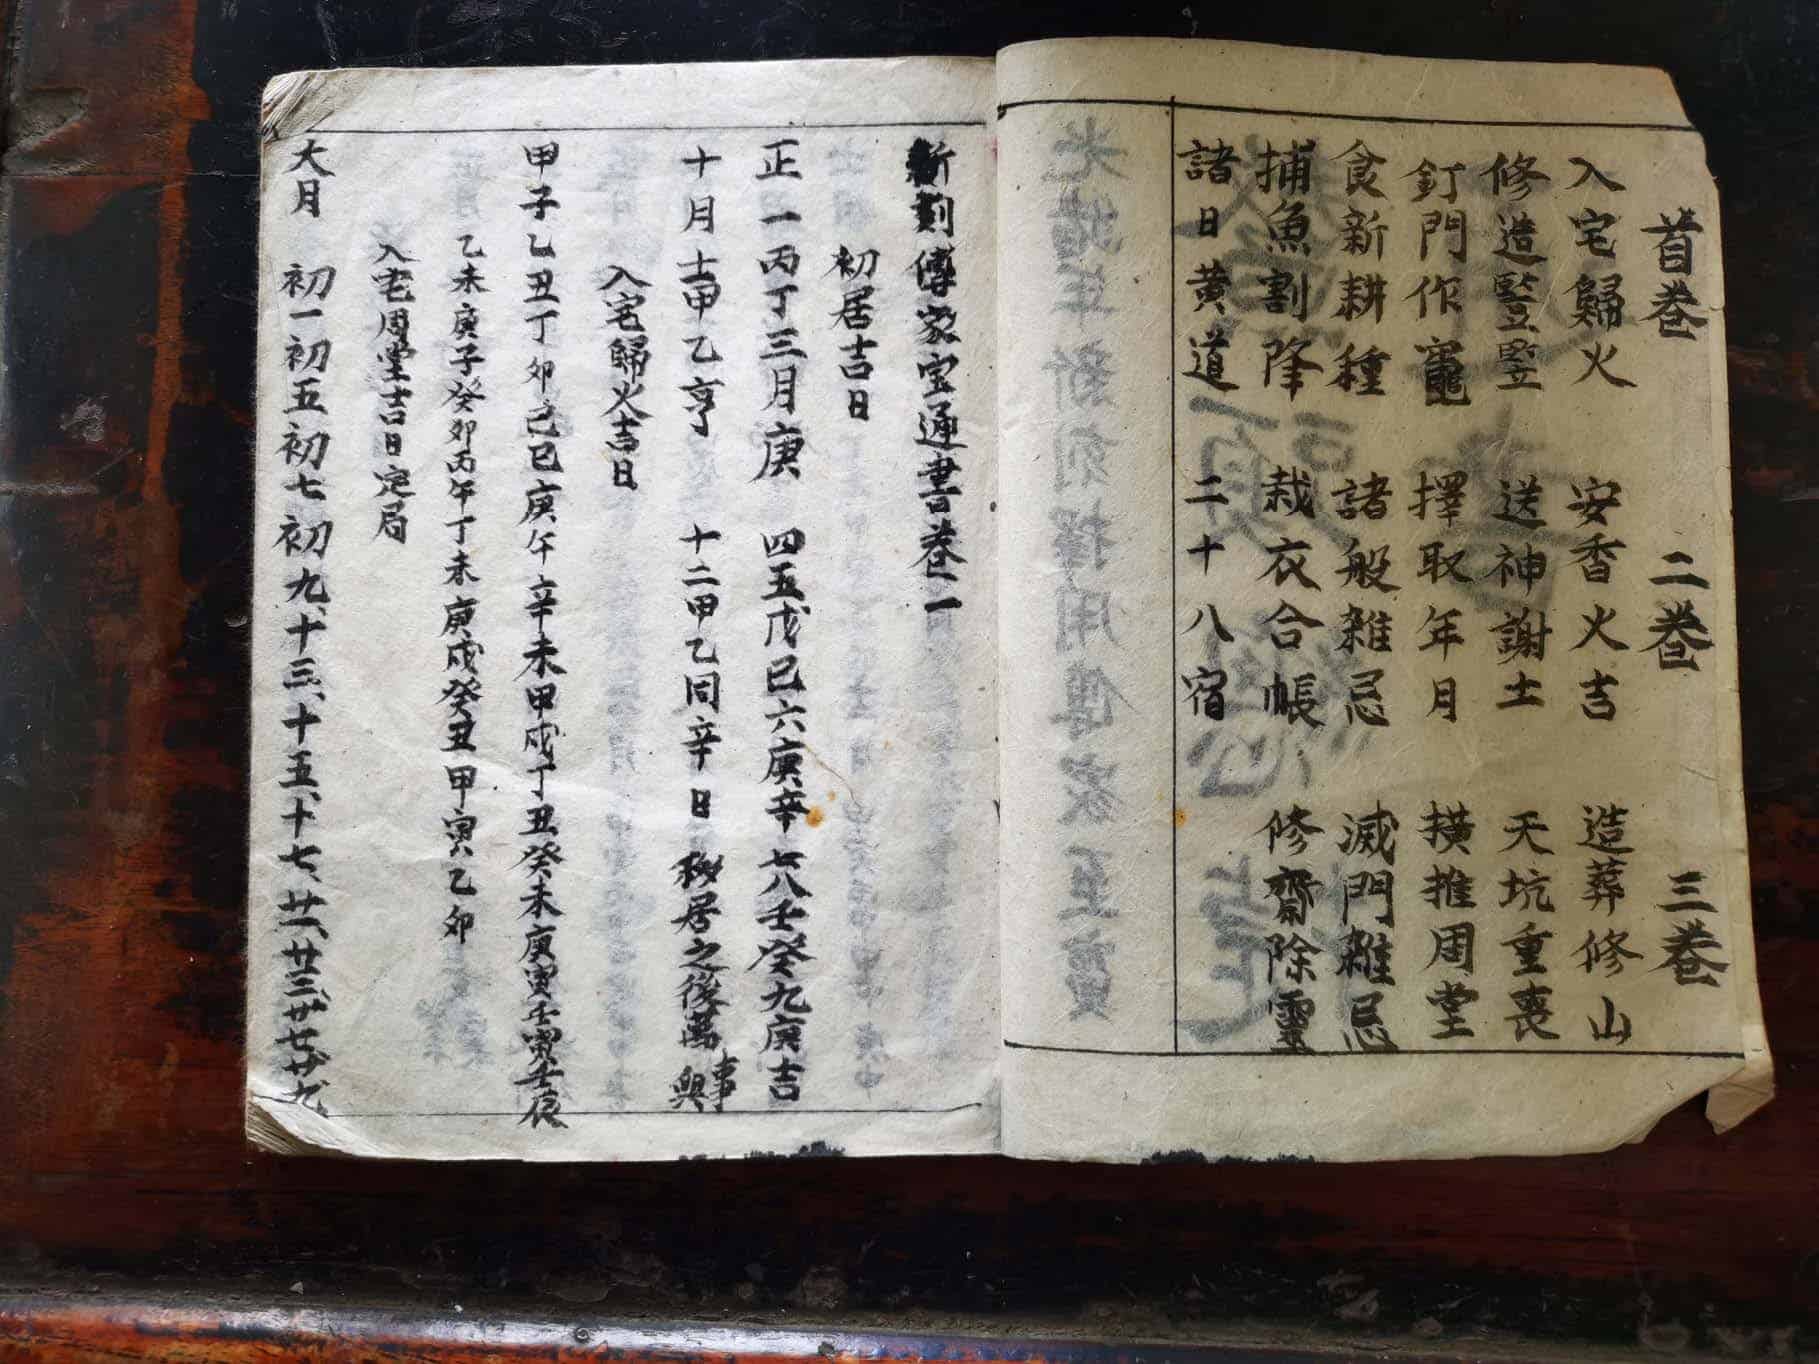 首卷 二卷 三卷
入宅歸火 安香火吉 造葬修山
修造竪竪 送神謝土 天坑重喪
釘門作竈 擇取年月 横推周堂
食新耕種 諸般雑忌 滅門雑忌
捕魚割降 裁衣合帳 修齋除靈
諸日黄道 二十八宿
新刻傳家宝通書卷一
初居吉日
正一丙丁三月庚 四五戊巳六庚辛 七八壬癸九庚吉
十月士甲乙亨 十二甲乙同辛日 移居之後萬事興
入宅歸火吉日
甲子乙丑丁卯己巳庚午辛未甲戌丁丑癸未庚寅壬寅壬辰
乙未庚子癸卯丙午丁未庚戌癸丑甲寅乙卯
入宅周堂吉日定局
大月 初一初五初七初九、十三、十五、十七、廿一、廿三、廿七廿九